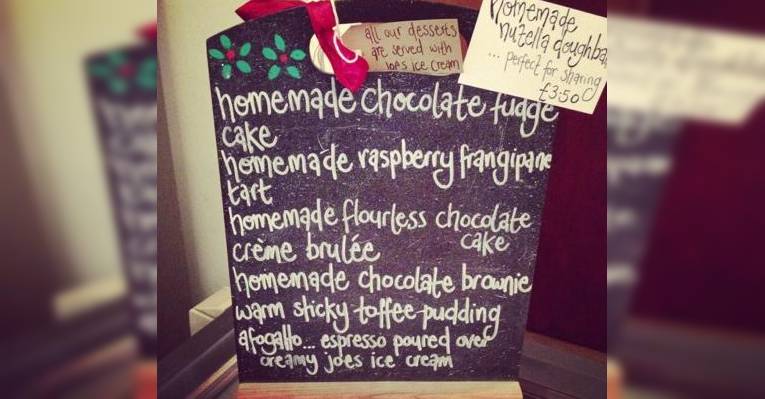 all our desserts
are served with
joes ice cream
homemade
nutella doughba
... perfect for sharing
£3.50
homemade chocolate fudge
cake
homemade raspberry frangipane
tart
homemade flourless chocolate
cake
crème brulée
homemade chocolate brownie
warm sticky toffee pudding
afogatto... espresso poured over
creamy joes ice cream